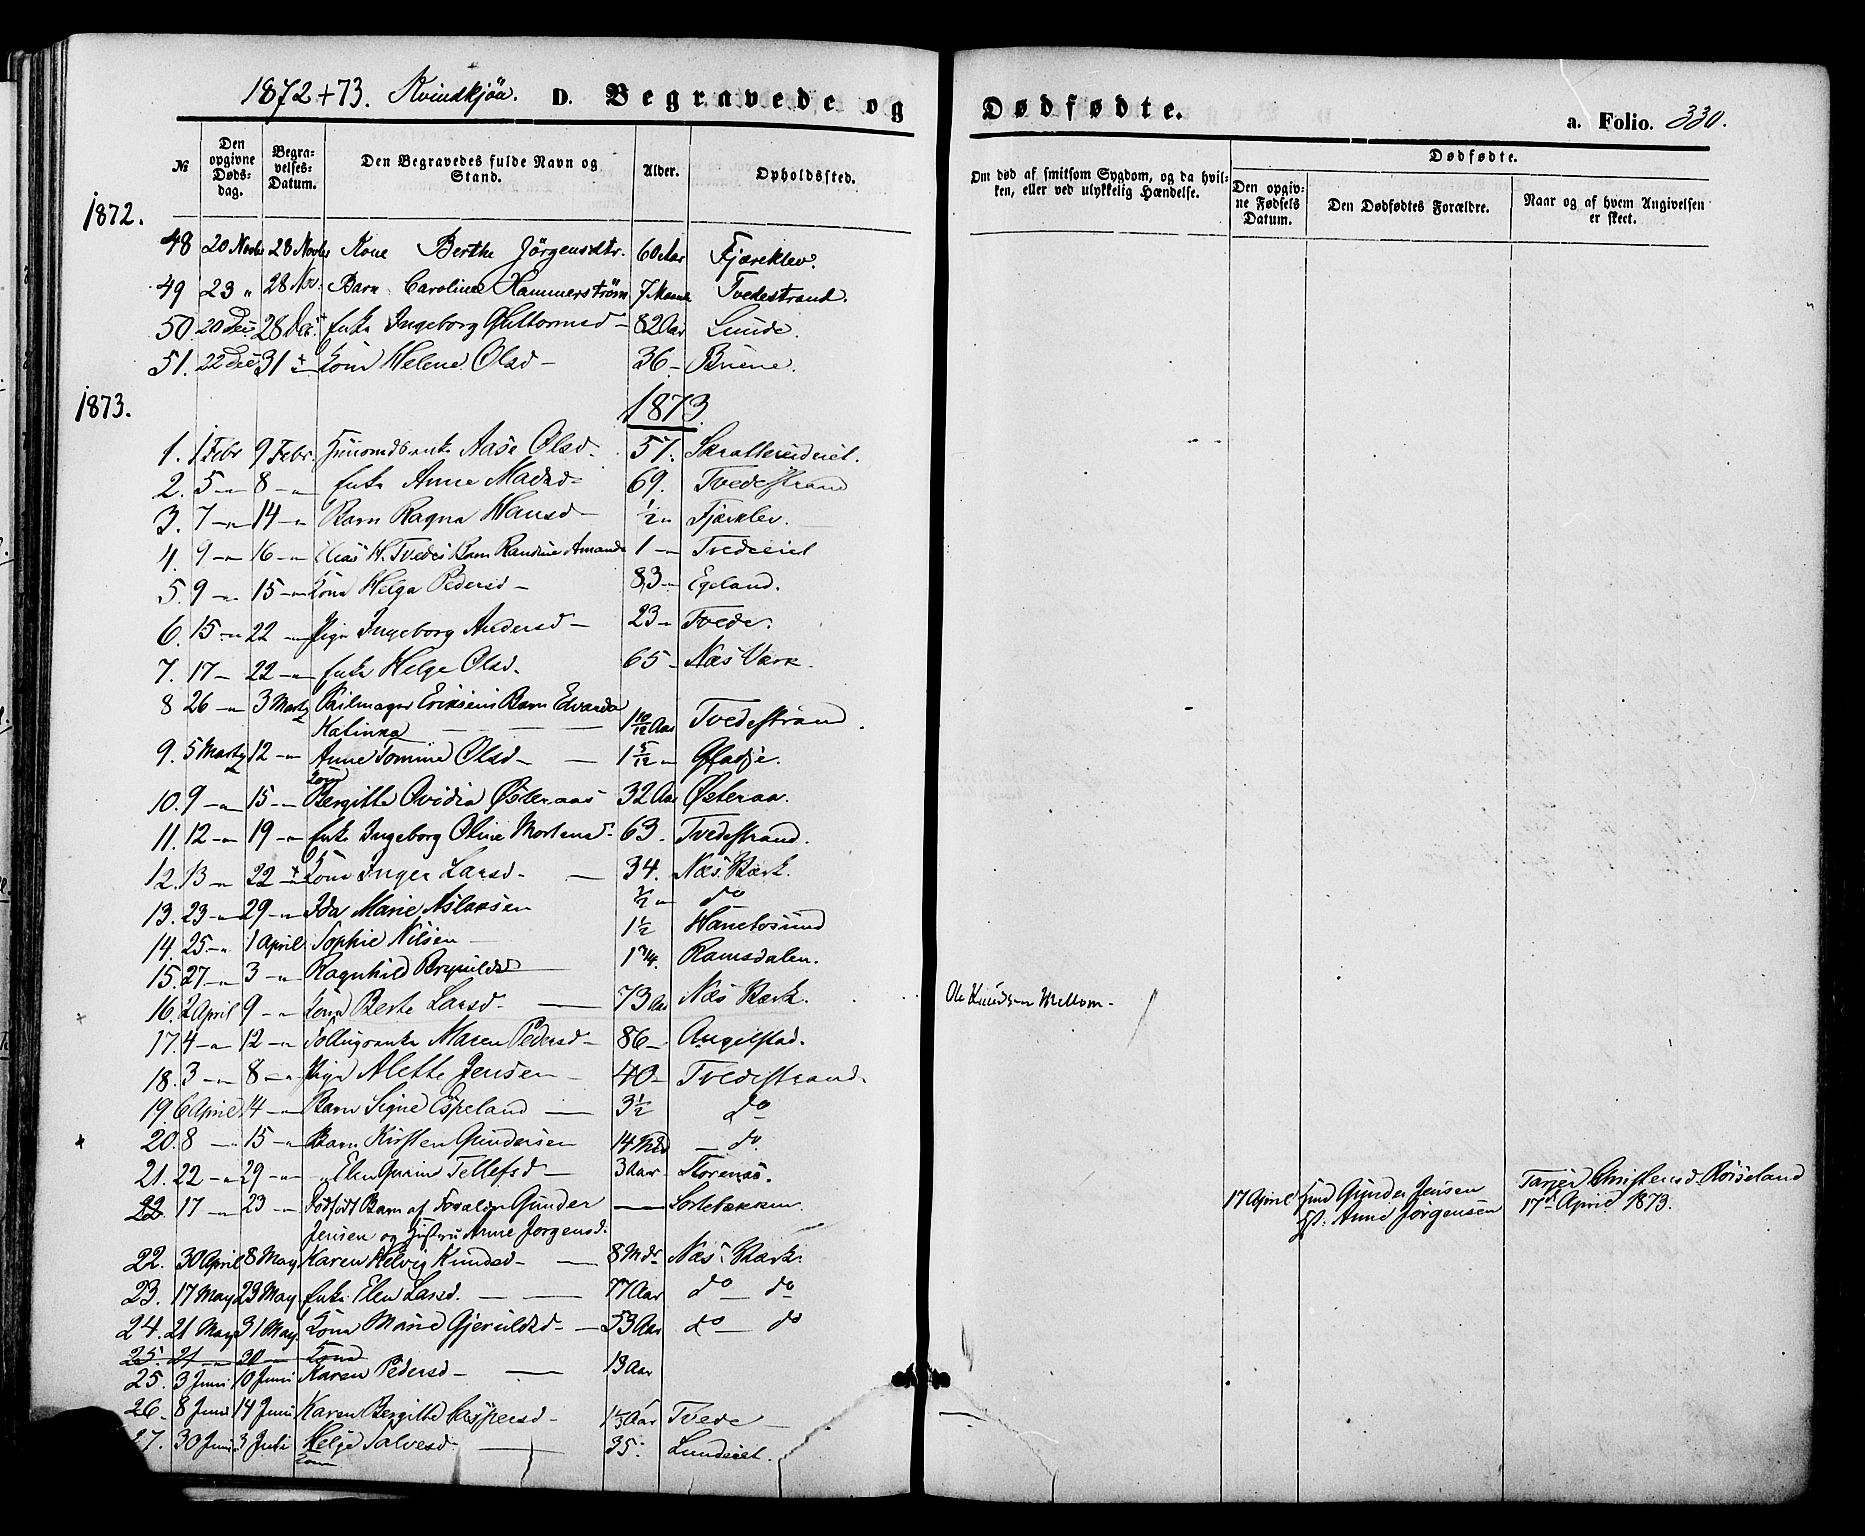 1872+73. Kvindkjøn. D. Begravede og Dødfødte. a. Folio. 330.
№ Den opgivne Døds-dag. Begra-velses-Datum. Den Begravedes fulde Navn og Stand. Alder. Opholdssted. Om død af smitsom Sygdom, og da hvil-ken, eller ved ulykkelig Hændelse. Dødfødte. Den opgiv-ne Fødsels Datum. Den Dødfødtes Forældre. Naar og af hvem Angivelsen er skeet.
1872.
48 20 Novbr 28 Novbr Kone Berthe Jörgensdtr. 60 Aar Fjæreklev.
49 23 " 28 Nov. Barn Caroline Hammerstrøm 7 Maan Tvedestrand.
50. 20 Dec 28 Dec. Enke Ingeborg Guttormsd - 82 Aar Lunde.
51. 22 Dec 31 Kone Helene Olsd - 36 - Briene.
1873. 1873
1. 1 Febr 9 Febr. Huusmdsenke Aase Olsd. 57. Skatterudeiet.
2. 5 -"- 8 -"- Enke Anne Madsd- 69. Tvedestrand
3. 7 -"- 14 -"- Barn Ragna Hansd - 1/2 " Fjærklev.
4. 9 -"- 16 -"- Elias H. Tvedes Barn Randine Amanda 1 -" Tvedeeiet
5. 9 -"- 15 -"- Kone Helga Pedersd - 83 -" Egeland.
6. 15 -"- 22 -"- Pige Ingeborg Andersd - 23 -" Tvede.
7. 17 - 22 -"- Enke Helge Olsd. 65 - Næs Værk.
8 26 -"- 3 Marts Seilmager Eriksens Barn Edvarda
Katinka - - - 1 10/12 Aar Tvedestrand.
9. 5 Marts 12 -"- Anne Tomine Olsd - - 1 5/12 " Gladje.
Kone
10. 9 -"- 15 -"- Bergitte Ovidia Østeraas 32 Aar Østeraa.
11. 12 -"- 19 -"- Enke Ingeborg Oline Mortensd. 63. Tvedestrand.
12. 13 -"- 22 Kone Inger Larsd - - 34. Næs. Værk.
13. 23 -"- 29 -"- Ida Marie Aslaksen 1/2 -" do
14. 25 -"- 1 April. Sophie Nilsen - 1 1/2 Hanetosund
15. 27 -"- 3 -"- Ragnhild Brynildsd 1 3/4. Ramsdalen.
16. 2 April 9 -"- Kone Berte Larsd - - 73 Aar Næs Værk. Ole Knudsen Mellom -
17. 4 -"- 12 -"- Maren Pedersd - 86 - Angelstad.
18. 3 -"- 8 -"- Pige Alette Jensen - 40 - Tvedestrand.
19. 6 April 14 -"- Barn Signe Espeland - 3 1/2 do
20. 8 -"- 15 -"- Barn Kirsten Gundersen 14 Md - do
21. 22 -"- 29 -"- " Elen Gurine Tellefsd - 3 Aar Storenæs.
22 17 -"- 23 -"- Dødfødt Barn af Forældre Gunder - Sortebækken. 17 April Gunder Jensen Tarjer Christensd Röiseland
Jensen og Hustru Anne Jorgensd. Hst. Anne Jorgensen 17de April 1873.
22. 30 April 8 May Karen Helvig Knudsd - - 8 Mdr Næs. Værk.
23. 17 May 23 May. Enke Elen Larsd. - - 77 Aar do - do
24. 21 May 31 May Kone Marie Gjeruldsd - 53 Aar do - do
25. 21 -"- 30 -"- Kone
25. 3 Juni 10 Juni Karen Pedersd - - 13 Aar
26. 8 Juni 14 Juni Karen Bergitte Caspersd - Aar Tvede -
27. 30 Juni 3 Juli Helje Salvesd - - 35. Lundeiet.
Kone